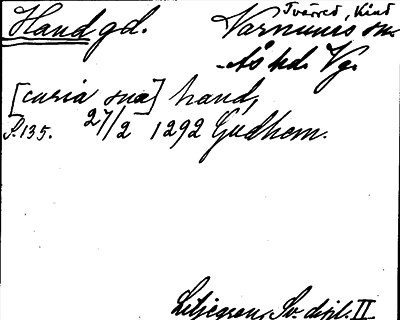 Hand gd.
Tvärred, Kind
Varnums sn.
Ås hd. Vg.
[curia sua] hand,
S. 135. 27/2 1292 Gudhem.
Liljegren, Sv. dipl. II